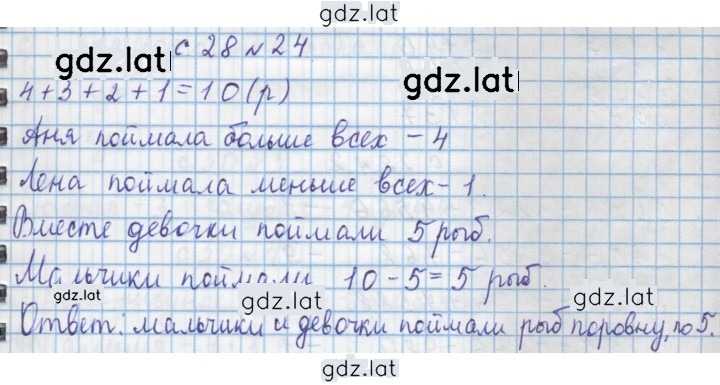 gdz.lat
с 28 № 24
gdz.lat
gdz.lat
4+3+2+1=10(р)
Аня поймала больше всех – 4
Лена поймала меньше всех – 1.
Вместе девочки поймали 5 рыб.
Мальчики поймали 10 – 5 = 5 рыб.
gdz.lat
gdz.lat
Ответ: мальчики и девочки поймали рыб поровну, по 5.
gdz.lat